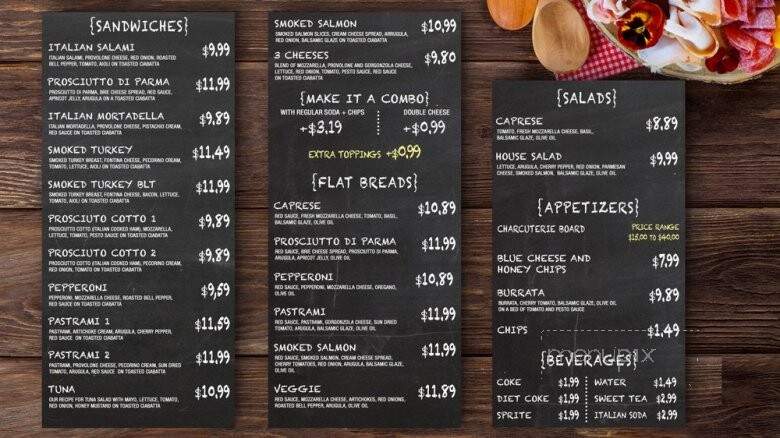 {SANDWICHES}
ITALIAN SALAMI $9,99
ITALIAN SALAMI, PROVOLONE CHEESE, RED ONION, ROASTED
BELL PEPPER, TOMATO, AIOLI ON TOASTED CIABATTA
PROSCIUTTO DI PARMA $11,99
PROSCIUTTO DI PARMA, BRIE CHEESE SPREAD, RED SAUCE,
APRICOT JELLY, ARUGULA ON A TOASTED CIABATTA
ITALIAN MORTADELLA $9,89
ITALIAN MORTADELLA, PROVOLONE CHEESE, PISTACHIO CREAM,
RED SAUCE ON TOASTED CIABATTA
SMOKED TURKEY $11,49
SMOKED TURKEY BREAST, FONTINA CHEESE, PECORINO CREAM,
TOMATO, LETTUCE, AIOLI ON TOASTED CIABATTA
SMOKED TURKEY BLT $11,99
SMOKED TURKEY BREAST, FONTINA CHEESE, BACON, LETTUCE,
TOMATO, AIOLI ON TOASTED CIABATTA
PROSCIUTO COTTO 1 $9,89
PRODSCIUTTO (ITALIAN COOKED HAM), MOZZARELLA,
LETTUCE, TOMATO, PESTO SAUCE ON TOASTED CIABATTA
PROSCIUTO COTTO 2 $9,89
PRODSCIUTTO (ITALIAN COOKED HAM), PECORINO CREAM,
RED ONION, TOMATO ON TOASTED CIABATTA
PEPPERONI $9,59
PEPPERONI, MOZZARELLA CHEESE, ROASTED BELL PEPPER,
RED SAUCE ON TOASTED CIABATTA
PASTRAMI 1 $11,59
PASTRAMI, ARTICHOKE CREAM, ARUGULA, CHERRY PEPPER,
RED SAUCE ON TOASTED CIABATTA
PASTRAMI 2 $11,99
PASTRAMI, PROVOLONE CHEESE, PECORINO CREAM, SUN DRIED
TOMATO, ARUGULA, RED SAUCE ON TOASTED CIABATTA
TUNA $10,99
OUR RECIPE FOR TUNA SALAD WITH MAYO, LETTUCE, TOMATO,
RED ONION, HONEY MUSTARD ON TOASTED CIABATTA
SMOKED SALMON $10,99
SMOKED SALMON SLICES, CREAM CHEESE SPREAD, ARRUGULA,
RED ONION, BALSAMIC GLAZE ON TOASTED CIABATTA
3 CHEESES $9,80
BLEND OF MOZZARELLA, PROVOLONE AND GORGONZOLA CHEESE,
LETTUCE, RED ONION, TOMATO, PESTO SAUCE, RED SAUCE
ON TOASTED CIABATTA
{MAKE IT A COMBO}
WITH REGULAR SODA + CHIPS DOUBLE CHEESE
+$3,19 +$0,99
EXTRA TOPPINGS +$0,99
{FLAT BREADS}
CAPRESE $10,89
RED SAUCE, FRESH MOZZARELLA CHEESE, TOMATO, BASIL,
BALSAMIC GLAZE, OLIVE OIL
PROSCIUTTO DI PARMA $11,99
RED SAUCE, BRIE CHEESE SPREAD, PROSCIUTTO DI PARMA,
ARUGULA, OLIVE OIL
PEPPERONI $10,89
RED SAUCE, PEPPERONI, MOZZARELLA CHEESE, OREGANO,
OLIVE OIL
PASTRAMI $11,99
RED SAUCE, PASTRAMI, GORGONZOLA CHEESE, SUN DRIED
TOMATO, ARUGULA, BALSAMIC GLAZE, OLIVE OIL
SMOKED SALMON $11,99
RED SAUCE, SMOKED SALMON, CREAM CHEESE SPREAD,
CHERRY TOMATOES, RED ONION, ARUGULA, BALSAMIC GLAZE,
OLIVE OIL
VEGGIE $11,89
RED SAUCE, MOZZARELLA CHEESE, ARTICHOKES, RED ONIONS,
ROASTED BELL PEPPER, ARUGULA, OLIVE OIL
{SALADS}
CAPRESE $8,89
TOMATO, FRESH MOZZARELLA CHEESE, BASIL,
BALSAMIC GLAZE, OLIVE OIL
HOUSE SALAD $9,99
LETTUCE, ARUGULA, CHERRY PEPPER, RED ONION, PARMESAN
CHEESE, SMOKED SALMON, BALSAMIC GLAZE, OLIVE OIL
{APPETIZERS}
CHARCUTERIE BOARD PRICE RANGE
$18,00 TO $40,00
BLUE CHEESE AND
HONEY CHIPS $7,99
BURRATA $9,89
BURRATA, CHERRY TOMATO, BALSAMIC GLAZE, OLIVE OIL
ON A BED OF TOMATO AND PESTO SAUCE
CHIPS $1,49
menupix
{BEVERAGES}
COKE $1,99 WATER $1,49
DIET COKE $1,99 SWEET TEA $2,99
SPRITE $1,99 ITALIAN SODA $2,99